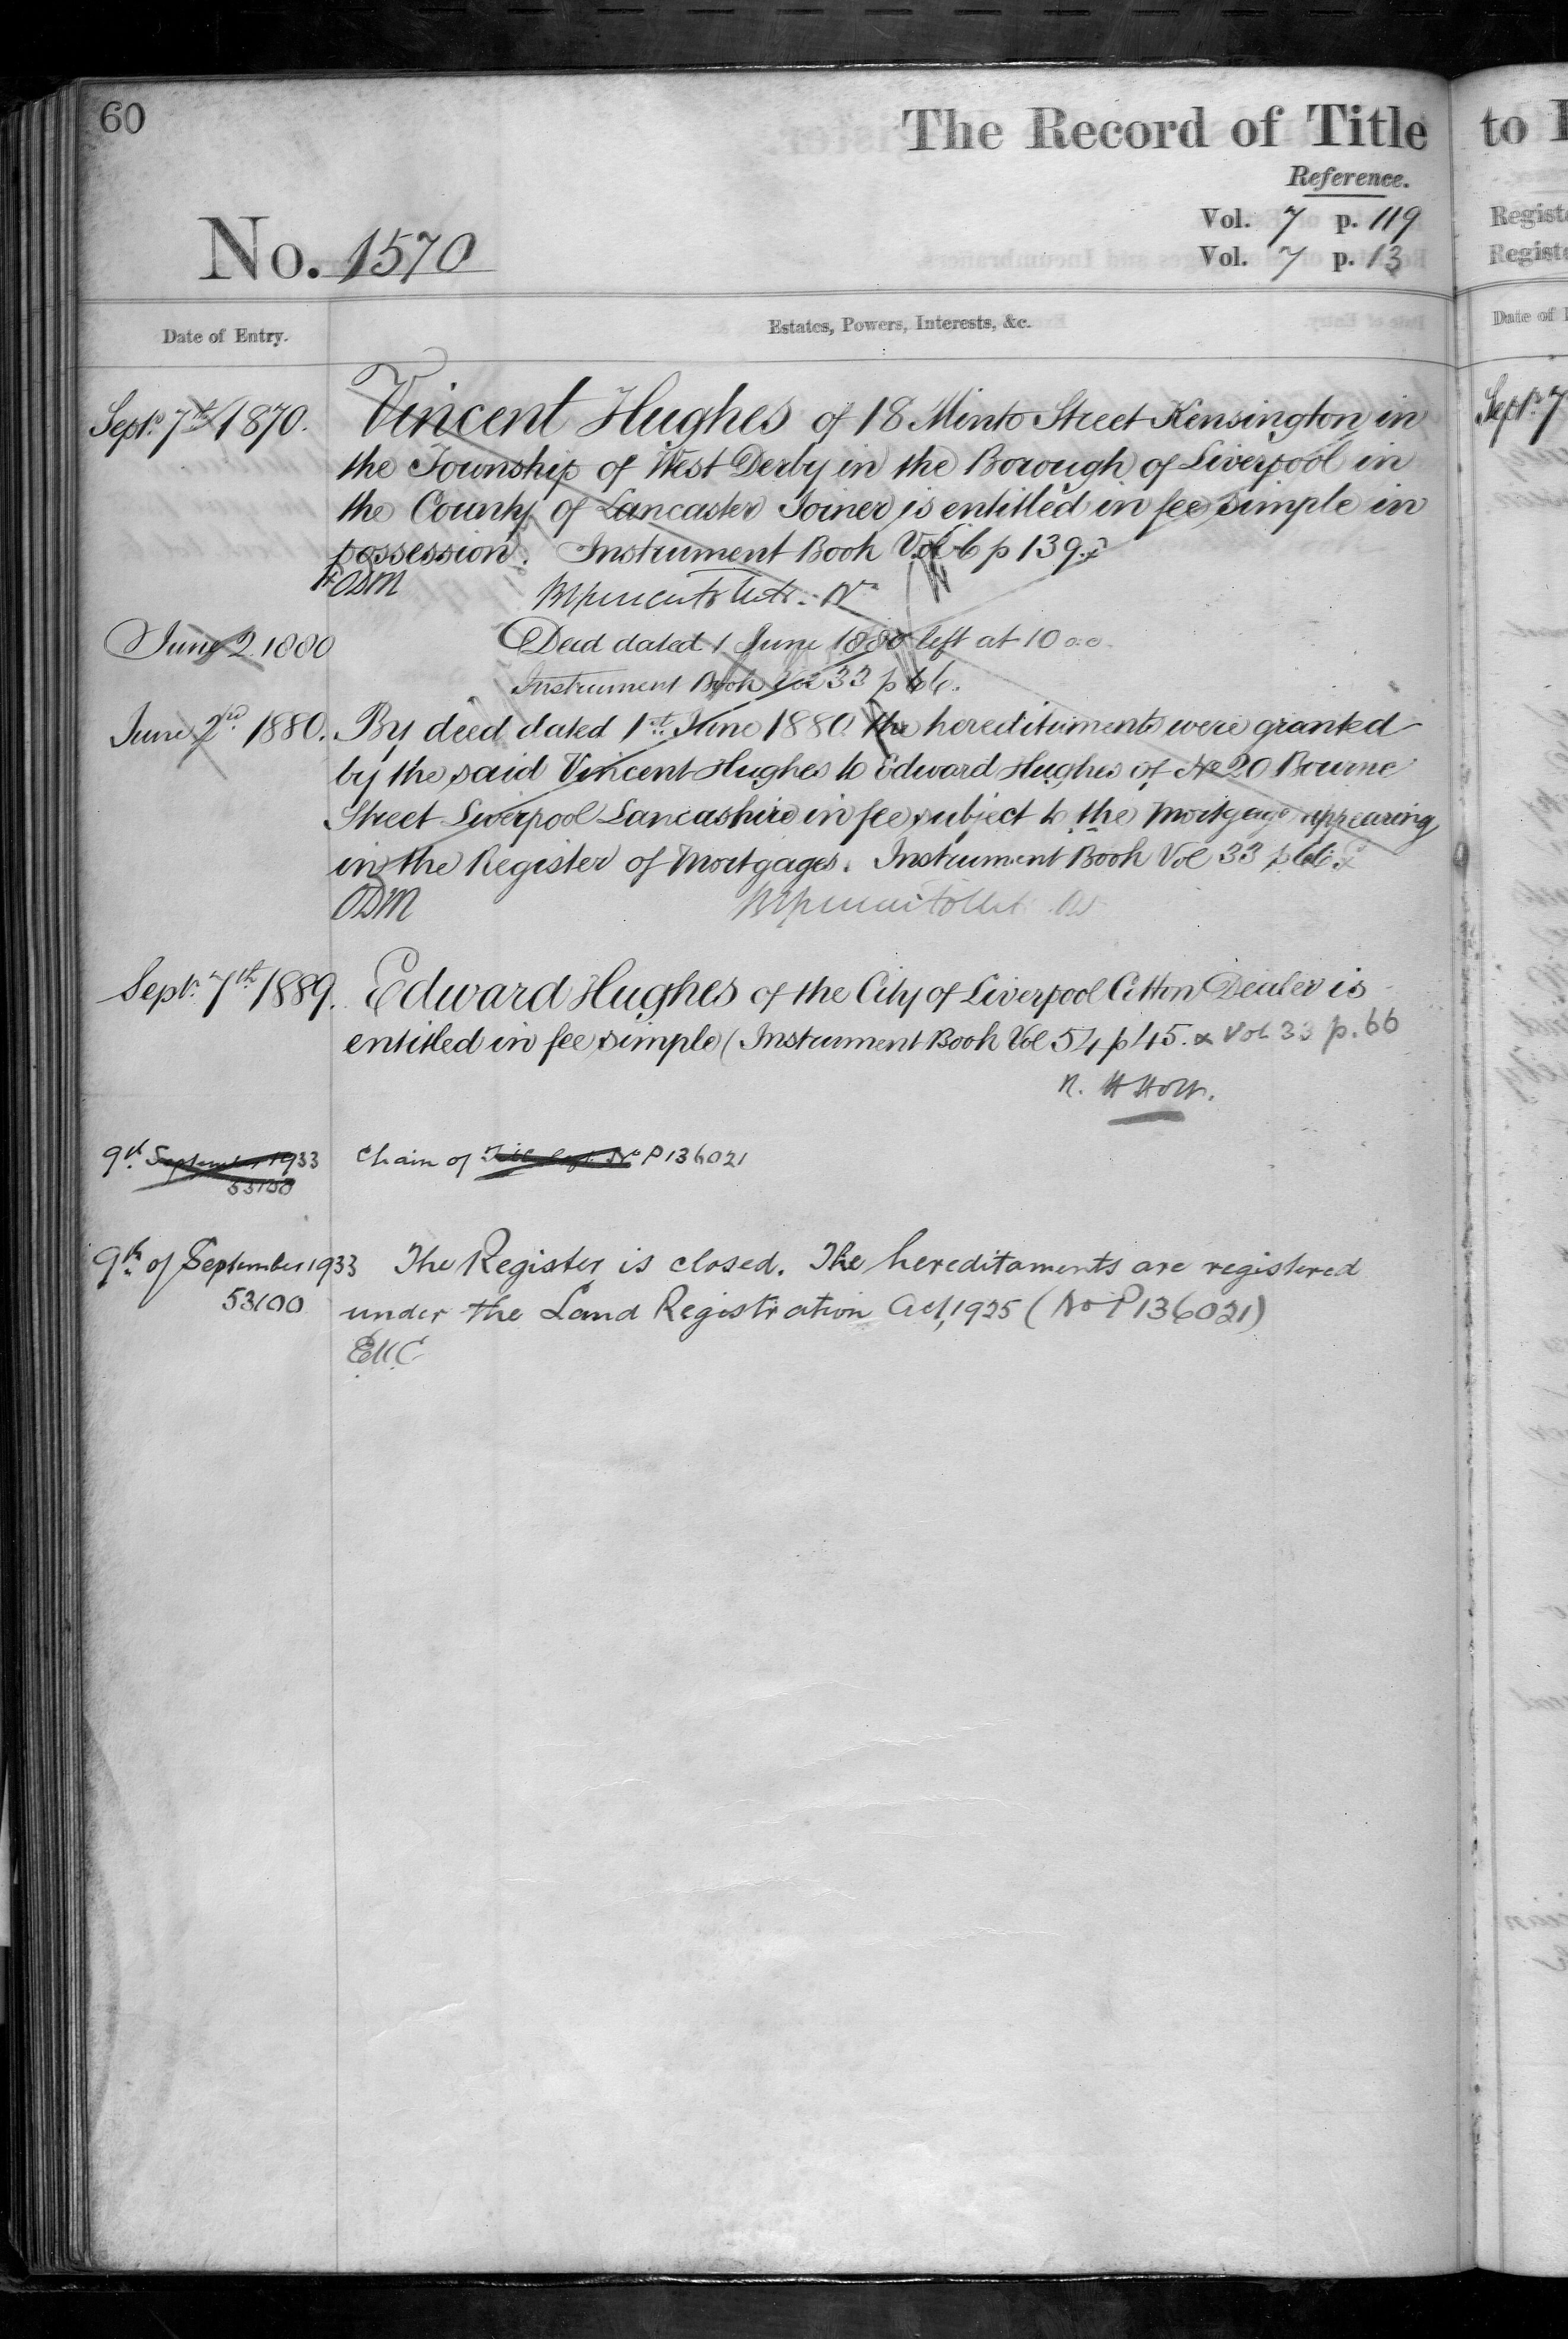 60
The Record of Title
Reference.
Vol. 7 p. 119
Vol. 7 p. 13
No. 1570
Date of Entry.
Estates, Powers, Interests, &c.
Sept. 7th 1870. Vincent Hughes of 18 Minto Street Kensington in
the Township of West Derby in the Borough of Liverpool in
the County of Lancaster Joiner is entitled in fee simple in
possession. Instrument Book Vol 6 p 139.
ODM
June 2 1880 Deed dated 1 June 1880 left at 10
Instrument Book Vol 33 p 66.
June 2nd 1880. By deed dated 1st June 1880 the hereditaments were granted
by the said Vincent Hughes to Edward Hughes of No 20 Bourne
Street Liverpool Lancashire in fee subject to the Mortgage appearing
in the Register of Mortgages. Instrument Book Vol 33 p 66.
ODM
Sept. 7th 1889. Edward Hughes of the City of Liverpool Cotton Dealer is
entitled in fee simple (Instrument Book Vol 54 p 45. & Vol 33 p. 66
9th September 1933 Chain of Title P136021
53100
9th of September 1933 The Register is closed. The hereditaments are registered
53100 under the Land Registration Act, 1925 (No P136021)
to
Regist
Regist
Date of
Sept. 7